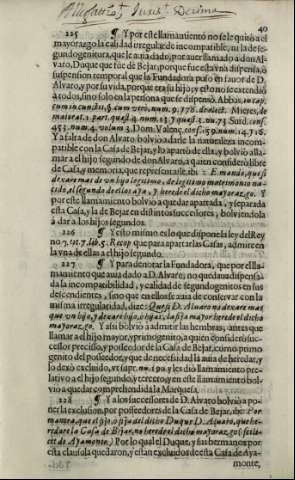 40
225 ¶ Y por este llamamiento no se le quitò a el
mayorazgo la calidad irregular de incompatible, ni la de se-
gundogenitura, que le auia dado, por auer llamado a don Al-
uaro, Duque que fue de Bejar; porque fue esta vna dispensa, o
suspension temporal que la Fundadora puso en fauor de D.
Aluaro, y por su vida, porque era su hijo; y esto no se extendiò
a todos, sino solo a la persona que se dispensò. Abbas, in cap.
Y faltando don Aluaro, boluio a darle la naturaleza incom-
patible con la Casa de Bejar, y lo apartò de ella, y boluio a lla-
mar a el hijo segundo de don Aluaro, a quien considerò libre
de Casa, y memoria, que representasse, ibi: E mando, que si
Y por este llamamiento boluio a quedar apartada, y separada
esta Casa, y la de Bejar en distintos successores, boluiendola
a dar a los hijos segundos.
226 ¶ Y esto mismo es lo que dispone la ley del Rey
no 7. tit. 7. lib. 5. Recop que para apartar las Casas, admite en
la vna de ellas a el hijo segundo.
227 ¶ Y para denotar la Fundadora, que por el lla-
mamiento que auia dado a D. Aluaro, no quedaua dispensa-
da la incompatibilidad, y calidad de segundogenitos en sus
descendientes, sino que en ellos se auia de conservar con la
misma irregularidad, dize: Que si D. Aluaro no dexare mas
que vn hijo, y dexare hijo, o hija a la hija mayor herede el dicho
mayorazgo. Y assi boluio a admitir las hembras, antes que
llamar a el hijo mayor, y primogenito, a quien considerò suc-
cessor preciso, y posseedor de la Casa de Bejar, como primo
genito del posseedor, y que de necessidad la auia de heredar, y
lo dexò excluido, vt supr. nu. 190 y les dio llamamiento pre-
latiuo a el hijo segundo, y tercero; y en este llamamiento bol-
vio a quedar comprehendida la Marquesa.
228 ¶ Y a los successores de D. Aluaro boluio a po-
nerla exclusion, por posseedores de la Casa de Bejar, ibi: Por
manera, que el hijo, o hija del dicho Duque D. Aluaro, que he-
redare la Casa de Bejar, no herede el dicho mayorazgo (es de
cir de Ayamonte.) Por lo qual el Duque, y sus hermanos por
esta clausula quedaron, y estan excluidos de esta Casa de Aya-
monte,